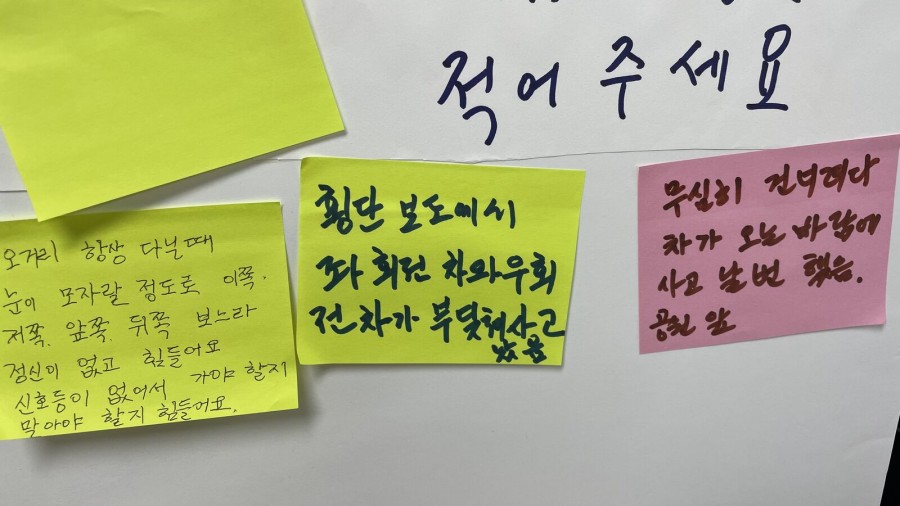 적어 주세요
오거리 항상 다닐때
눈이 모자랄 정도로 이쪽.
저쪽. 앞쪽. 뒤쪽 보느라
정신이 없고 힘들어요
신호등이 없어서 가야 할지
말아야 할지 힘들어요.
횡단 보도에서
좌 회전 차와우회
전 차가 부딪혜사고
났음
무심히 건너려다
차가 오는 바람에
사고 날번 했음.
공원 앞